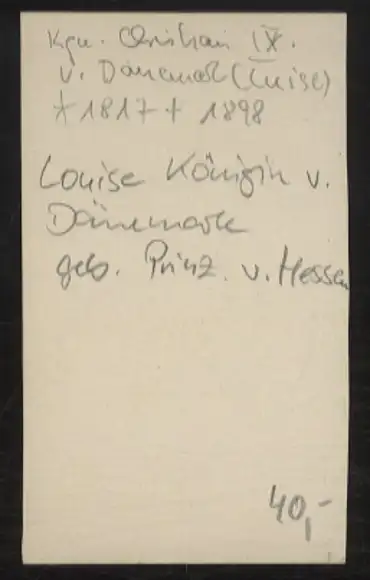 Kgn. Christian IX.
v. Dänemark (Luise)
* 1817 + 1898
Louise Königin v.
Dänemark
geb. Prinz. v. Hessen
40,-